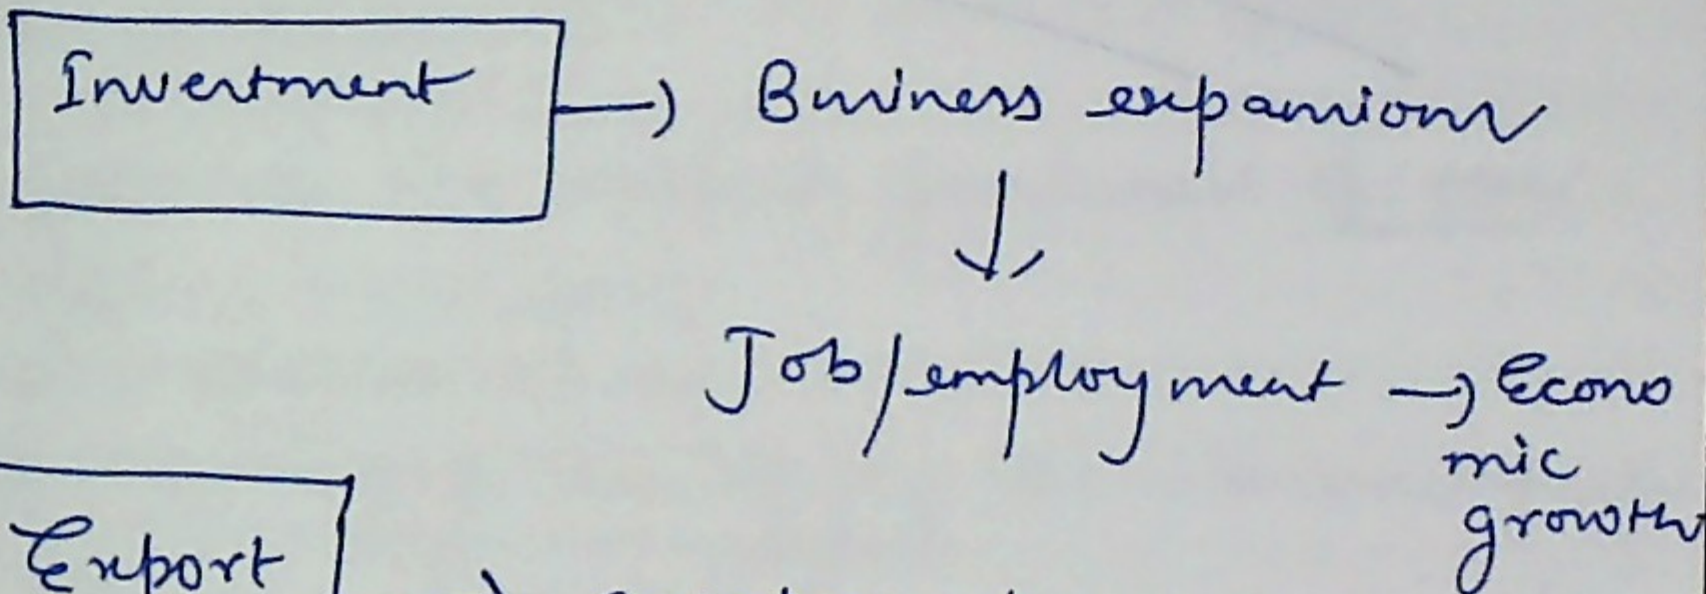 Investment → Business expansions
↓
Job/employment → Econo
mic
growth
Export